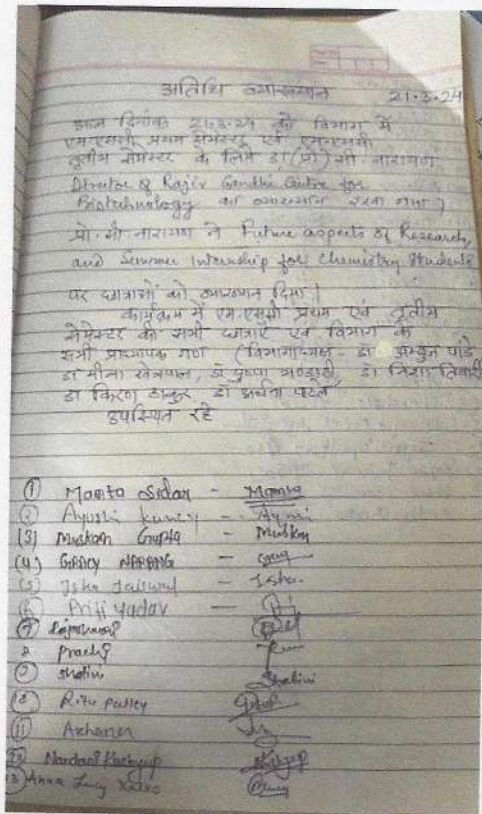 अतिथि व्याख्यान 21.3.24
आज दिनांक 21.3.24 को विभाग में
एम.एससी प्रथम सेमेस्टर एवं एमएससी
तृतीय सेमेस्टर के लिये डा (प्रो) सी नारायण
Director of Rajiv Gandhi Centre for
Biotechnology का व्याख्यान रखा गया।
प्रो. सी नारायण ने Future aspects of Research,
and Summer Internship for Chemistry Students
पर छात्राओं को व्याख्यान दिया।
कार्यक्रम में एम.एससी प्रथम एवं तृतीय
सेमेस्टर की सभी छात्राएं एवं विभाग के
सभी प्राध्यापक गण (विभागाध्यक्ष - डा पांडे
डा मीना खेत्रपाल, डॉ पुष्पा डा तिवारी
डा किरण ठाकुर, डॉ अर्चना पटेल
उपस्थित रहे
(1) Mamta Sidar - Mamta
(2) Ayushi - Ayushi
(3) Muskan Gupta - Muskan
(4) NARANG -
(5) Isha Jaiswal - Isha.
(6) Priti Yadav -
(7) Rajeshwari
8 Prachi
(9) Shalini Shalini
(10) Ritu
(11)
(12) Nandani Kashyap Kashyap
(13) Anna Lucy Xalxo